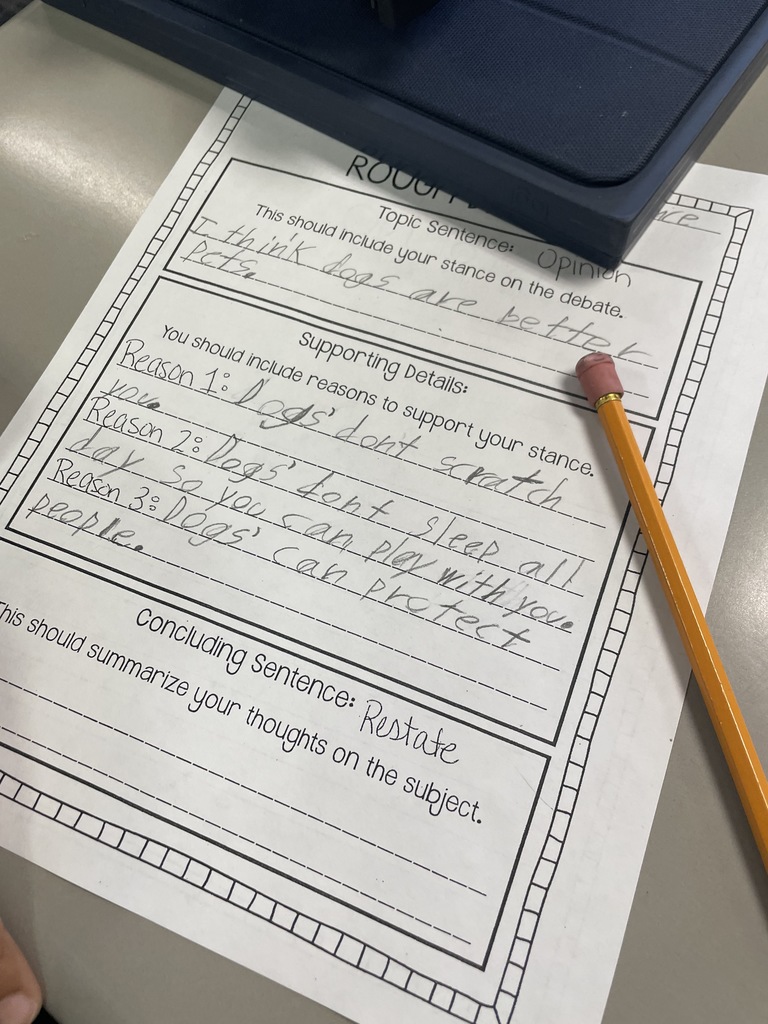 Topic Sentence: Opinion
This should include your stance on the debate.
I think dogs are better
Pets.
Supporting Details:
You should include reasons to support your stance.
Reason 1: Dogs' dont scratch
you.
Reason 2: Dogs' dont sleep all
day so you can play with you.
Reason 3: Dogs' can protect
people.
Concluding Sentence: Restate
This should summarize your thoughts on the subject.